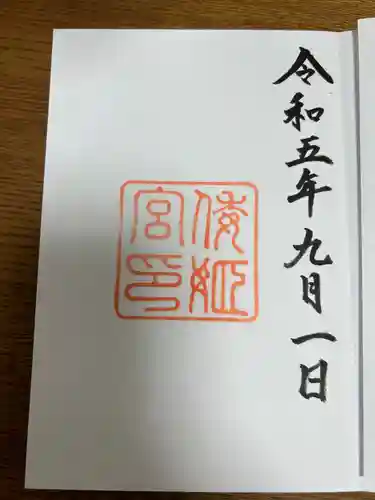 令和五年九月一日
倭姫
宮印